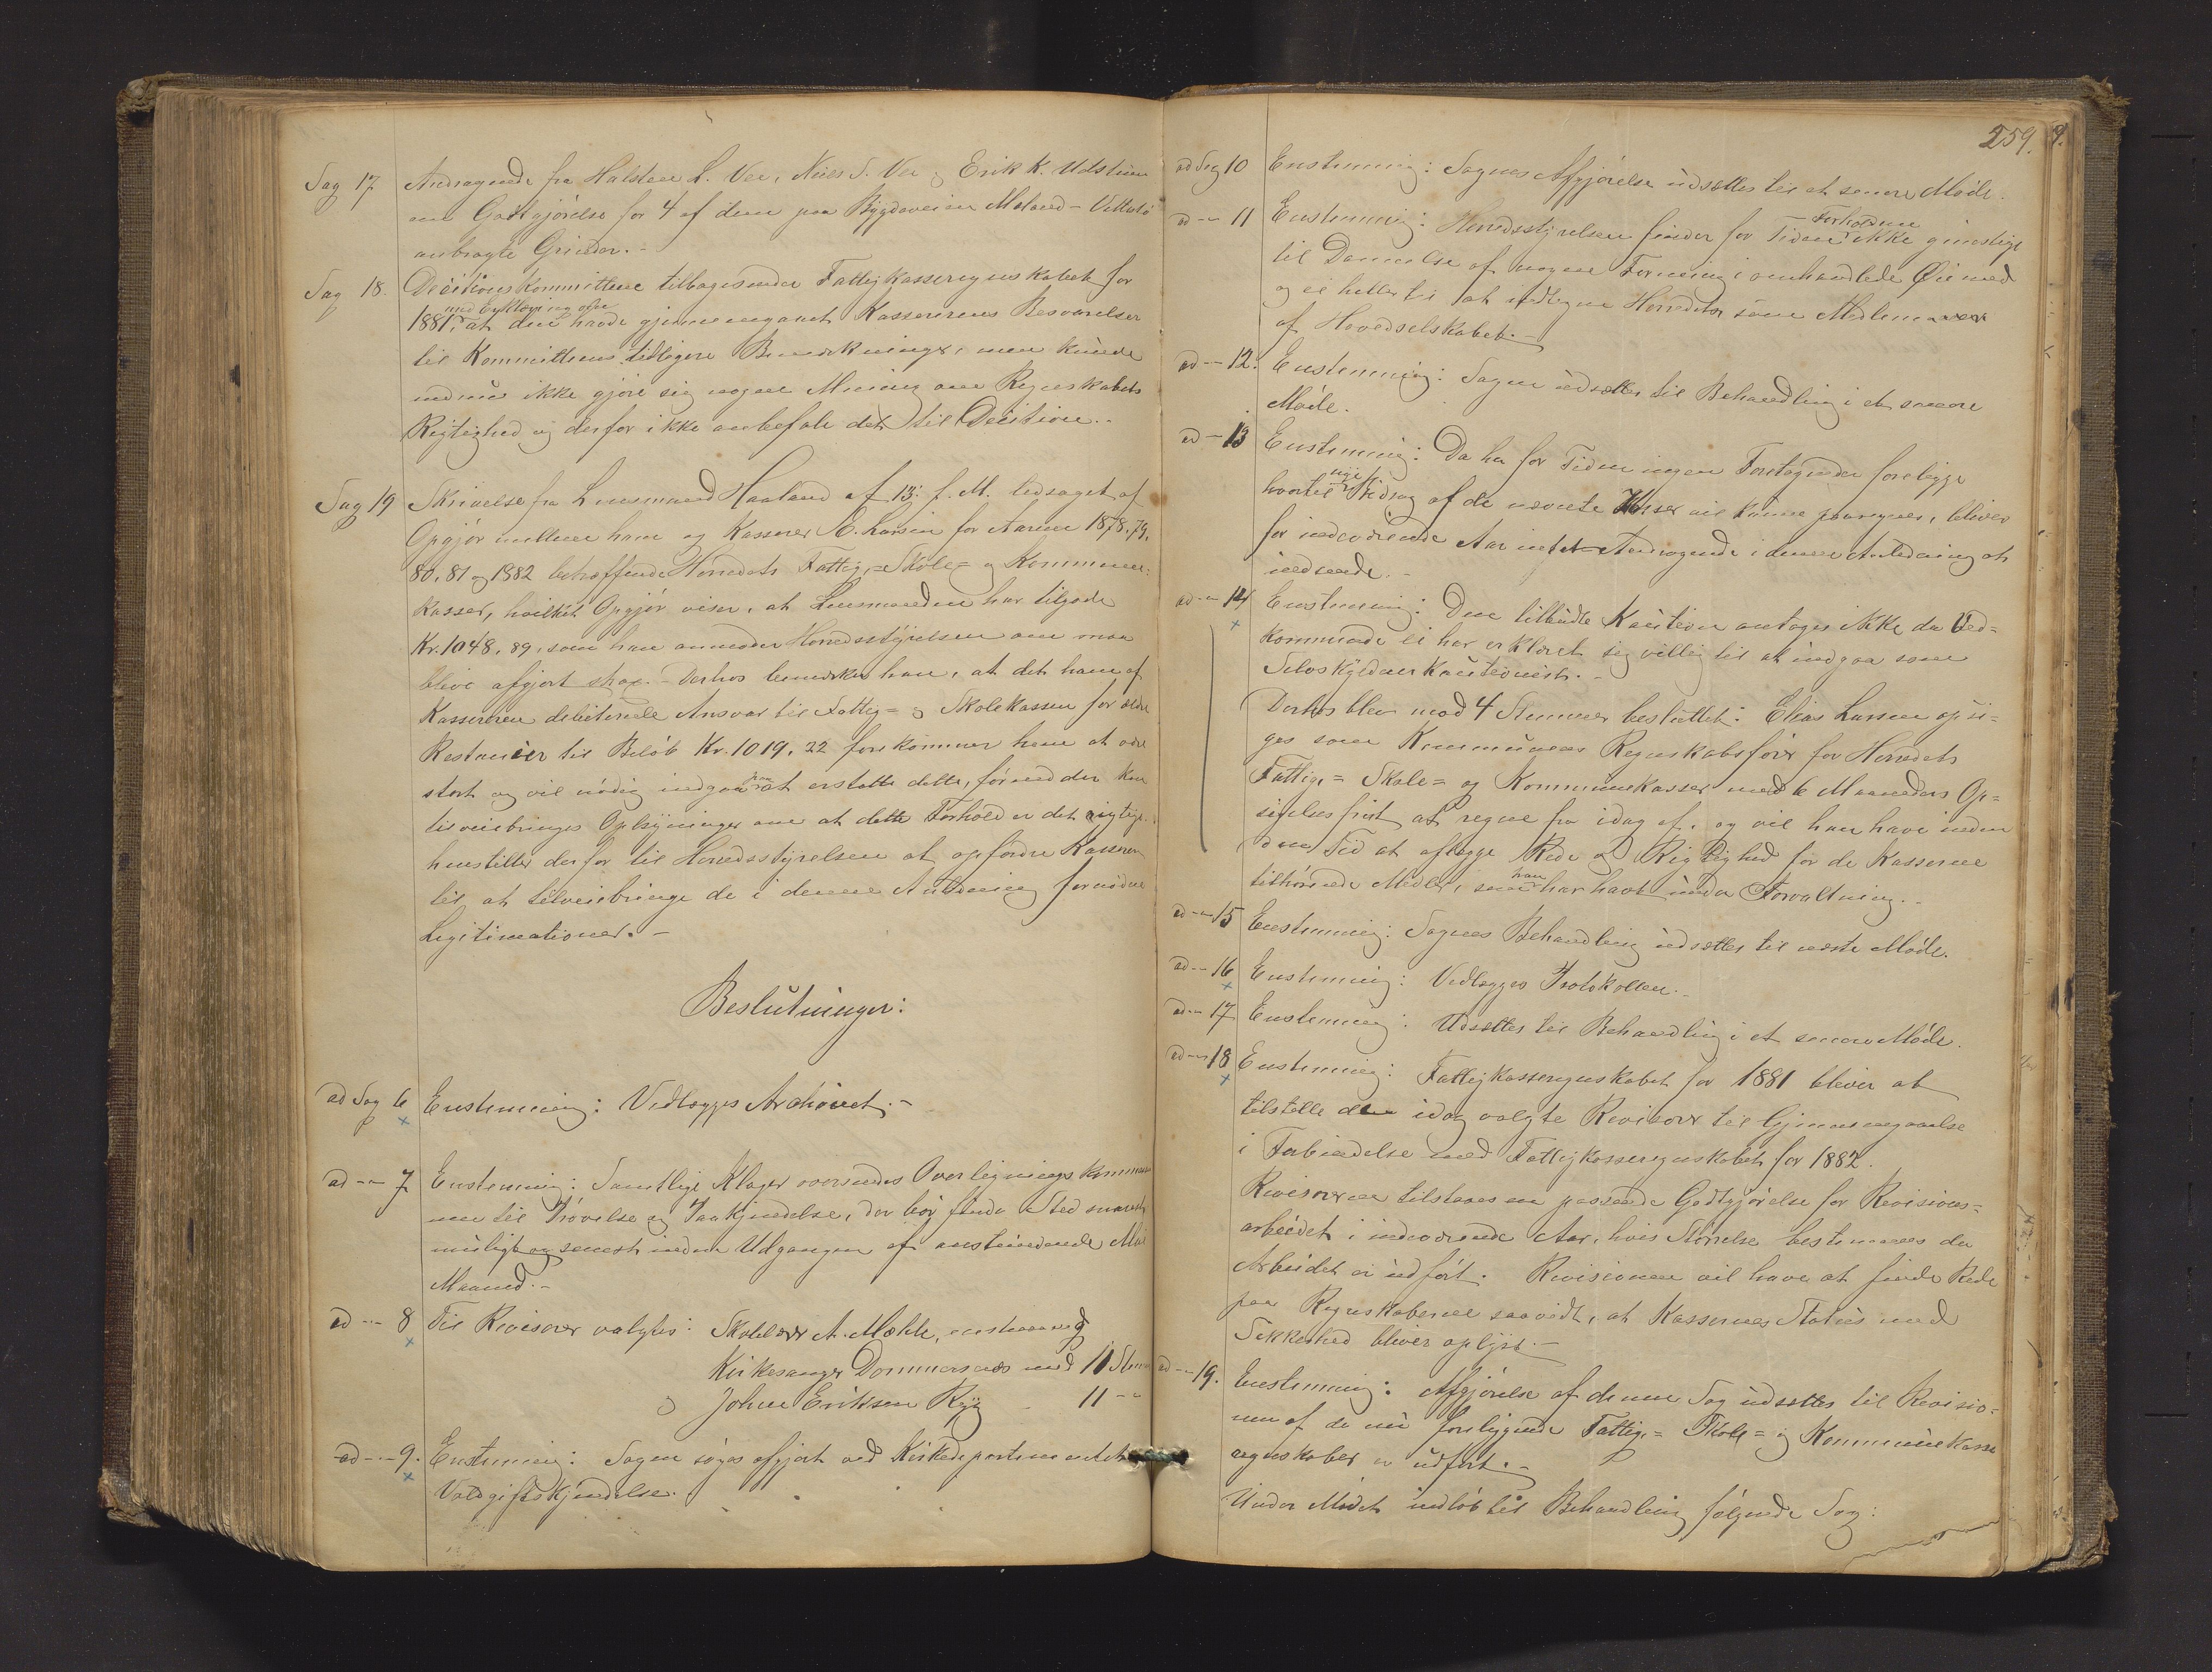 Sag 17 Andragende fra Halsten L. Vee, Niels S. Vee og Erik K. Udstuen
om Godtgjörelse for 4 af dem paa Bygdeveien Meland - Vettestö
anbragte Grinder. -
Sag 18. Decitionskommitteen tilbagesender Fattigkasseregnskabet for
med Erklæring ofre
1881, at den havde gjennemgaaet Kassererens Besvarelser
til Kommitteens tidligere Bemærkninger, men kunde
endnu ikke gjöre sig nogen Mening om Regnskabets
Rigtighed og derfor ikke anbefale det til Decition. -
Sag 19 Skrivelse fra Lensmand Haaland af 13. f. M. ledsaget af
Opgjör mellem ham og Kasserer E. Larsen for Aarene 1878, 79,
80, 81 og 1882 beträffende Herredets Fattig,= Skole= og Kommune-
kasser, hvilket Opgjör viser, at Lensmanden har tilgode
Kr. 1048,89, som han anmoder Herredsstyrelsen om maa
blive afgjort strax. - Derhos bemærker han, at det ham af
Kassereren debiterede Ansvar til Fattig= og Skolekassen for ældre
Restancer til Belöb Kr. 1019,22 forekommer ham at være
stort og vil nödig indgaa paa at erstatte dette, förend der kan
tilveiebringes Oplysninger om at dette Forhold er det rigtige.
henstiller derfor til Herredsstyrelsen at opfordre Kasseren
til at tilveiebringe de i denne Anledning fornödne
Legitimationer. -
Beslutninger:
ad Sag 6 Enstemmig: Vedlægges Archivet. -
ad - 7 Enstemmig: Samtlige Klager oversendes Overligningskommis
nen til Prövelse og Paakjendelse, der bör finde Sted snarest
muligt og senest inden Udgangen af anstundende Mai
Maaned. -
ad - 8 Til Revisorer valgtes: Skolelærer A. Mæhle, enstemmig
Kirkesanger Dommersnes med 11 Stem
og Johan Eriksen Ryg - 11 -
ad - 9. Enstemmig: Sagen söges afgjort ved Kirkedepartementets
Voldgiftskjendelse.
259.
ad Sag 10 Enstemmig: Sagens Afgjörelse udsættes til et senere Möde.
ad - 11 Enstemmig: Herredsstyrelsen finder for Tiden Forholdene ikke gunstige
til Dannelse af nogen Forening i omhandlede Öiemed
og ei heller til at indtegne Herredet som Medlem
af Hovedselskabet. -
ad - 12. Enstemmig: Sagen udsættes til Behandling i et senere
Möde.
ad - 13 Enstemmig: Da her for Tiden ingen Foretagender foreligge
hvortil nye Bidrag af de nævnte Kasser vil kunne paaregnes, bliver
for indeværende Aar intet Andragende i denne Anledning at
indsende. -
ad - 14 Enstemmig: Den tilbudte Kaution antages ikke da Ved=
kommende ei har erklæret sig villig til at indgaa som
Selvskyldnerkautionist. -
Derhos blev mod 4 Stemmer besluttet: Elias Larsen opsi=
ges som Kommunens Regnskabsförer for Herredets
Fattig,= Skole= og Kommunekasser med 6 Maaneders Op=
sigelsesfrist at regne fra idag af, og vil han have inden
den Tid at aflægge Rede og Rigtighed for de Kasserne
tilhörende Midler, som han har havt under Forvaltning. -
ad - 15 Enstemmig: Sagens Behandling udsættes til næste Möde.
ad - 16 Enstemmig: Vedlægges Protokollen. -
ad - 17 Enstemmig: Udsættes til Behandling i et senere Möde.
ad - 18 Enstemmig: Fattigkasseregnskabet for 1881 bliver at
tilstille den idag valgte Revisorer til Gjennemgaaelse
i Forbindelse med Fattigkasseregnskabet for 1882.
Revisorerne tilstaaes en passende Godtgjörelse for Revisions=
arbeidet i indeværende Aar, hvis Störrelse bestemmes da
Arbeidet er udfört. Revisionen vil have at finde Rede
paa Regnskaberne saavidt, at Kassernes Status med
Sikkerhed bliver oplyst. -
ad - 19. Enstemmig: Afgjörelse af denne Sag udsættes til Revisio=
nen af de nu foreliggende Fattig,= Skole= og Kommunekasse
regnskaber er udfört. -
Under Mödet indlöb til Behandling fölgende Sag: